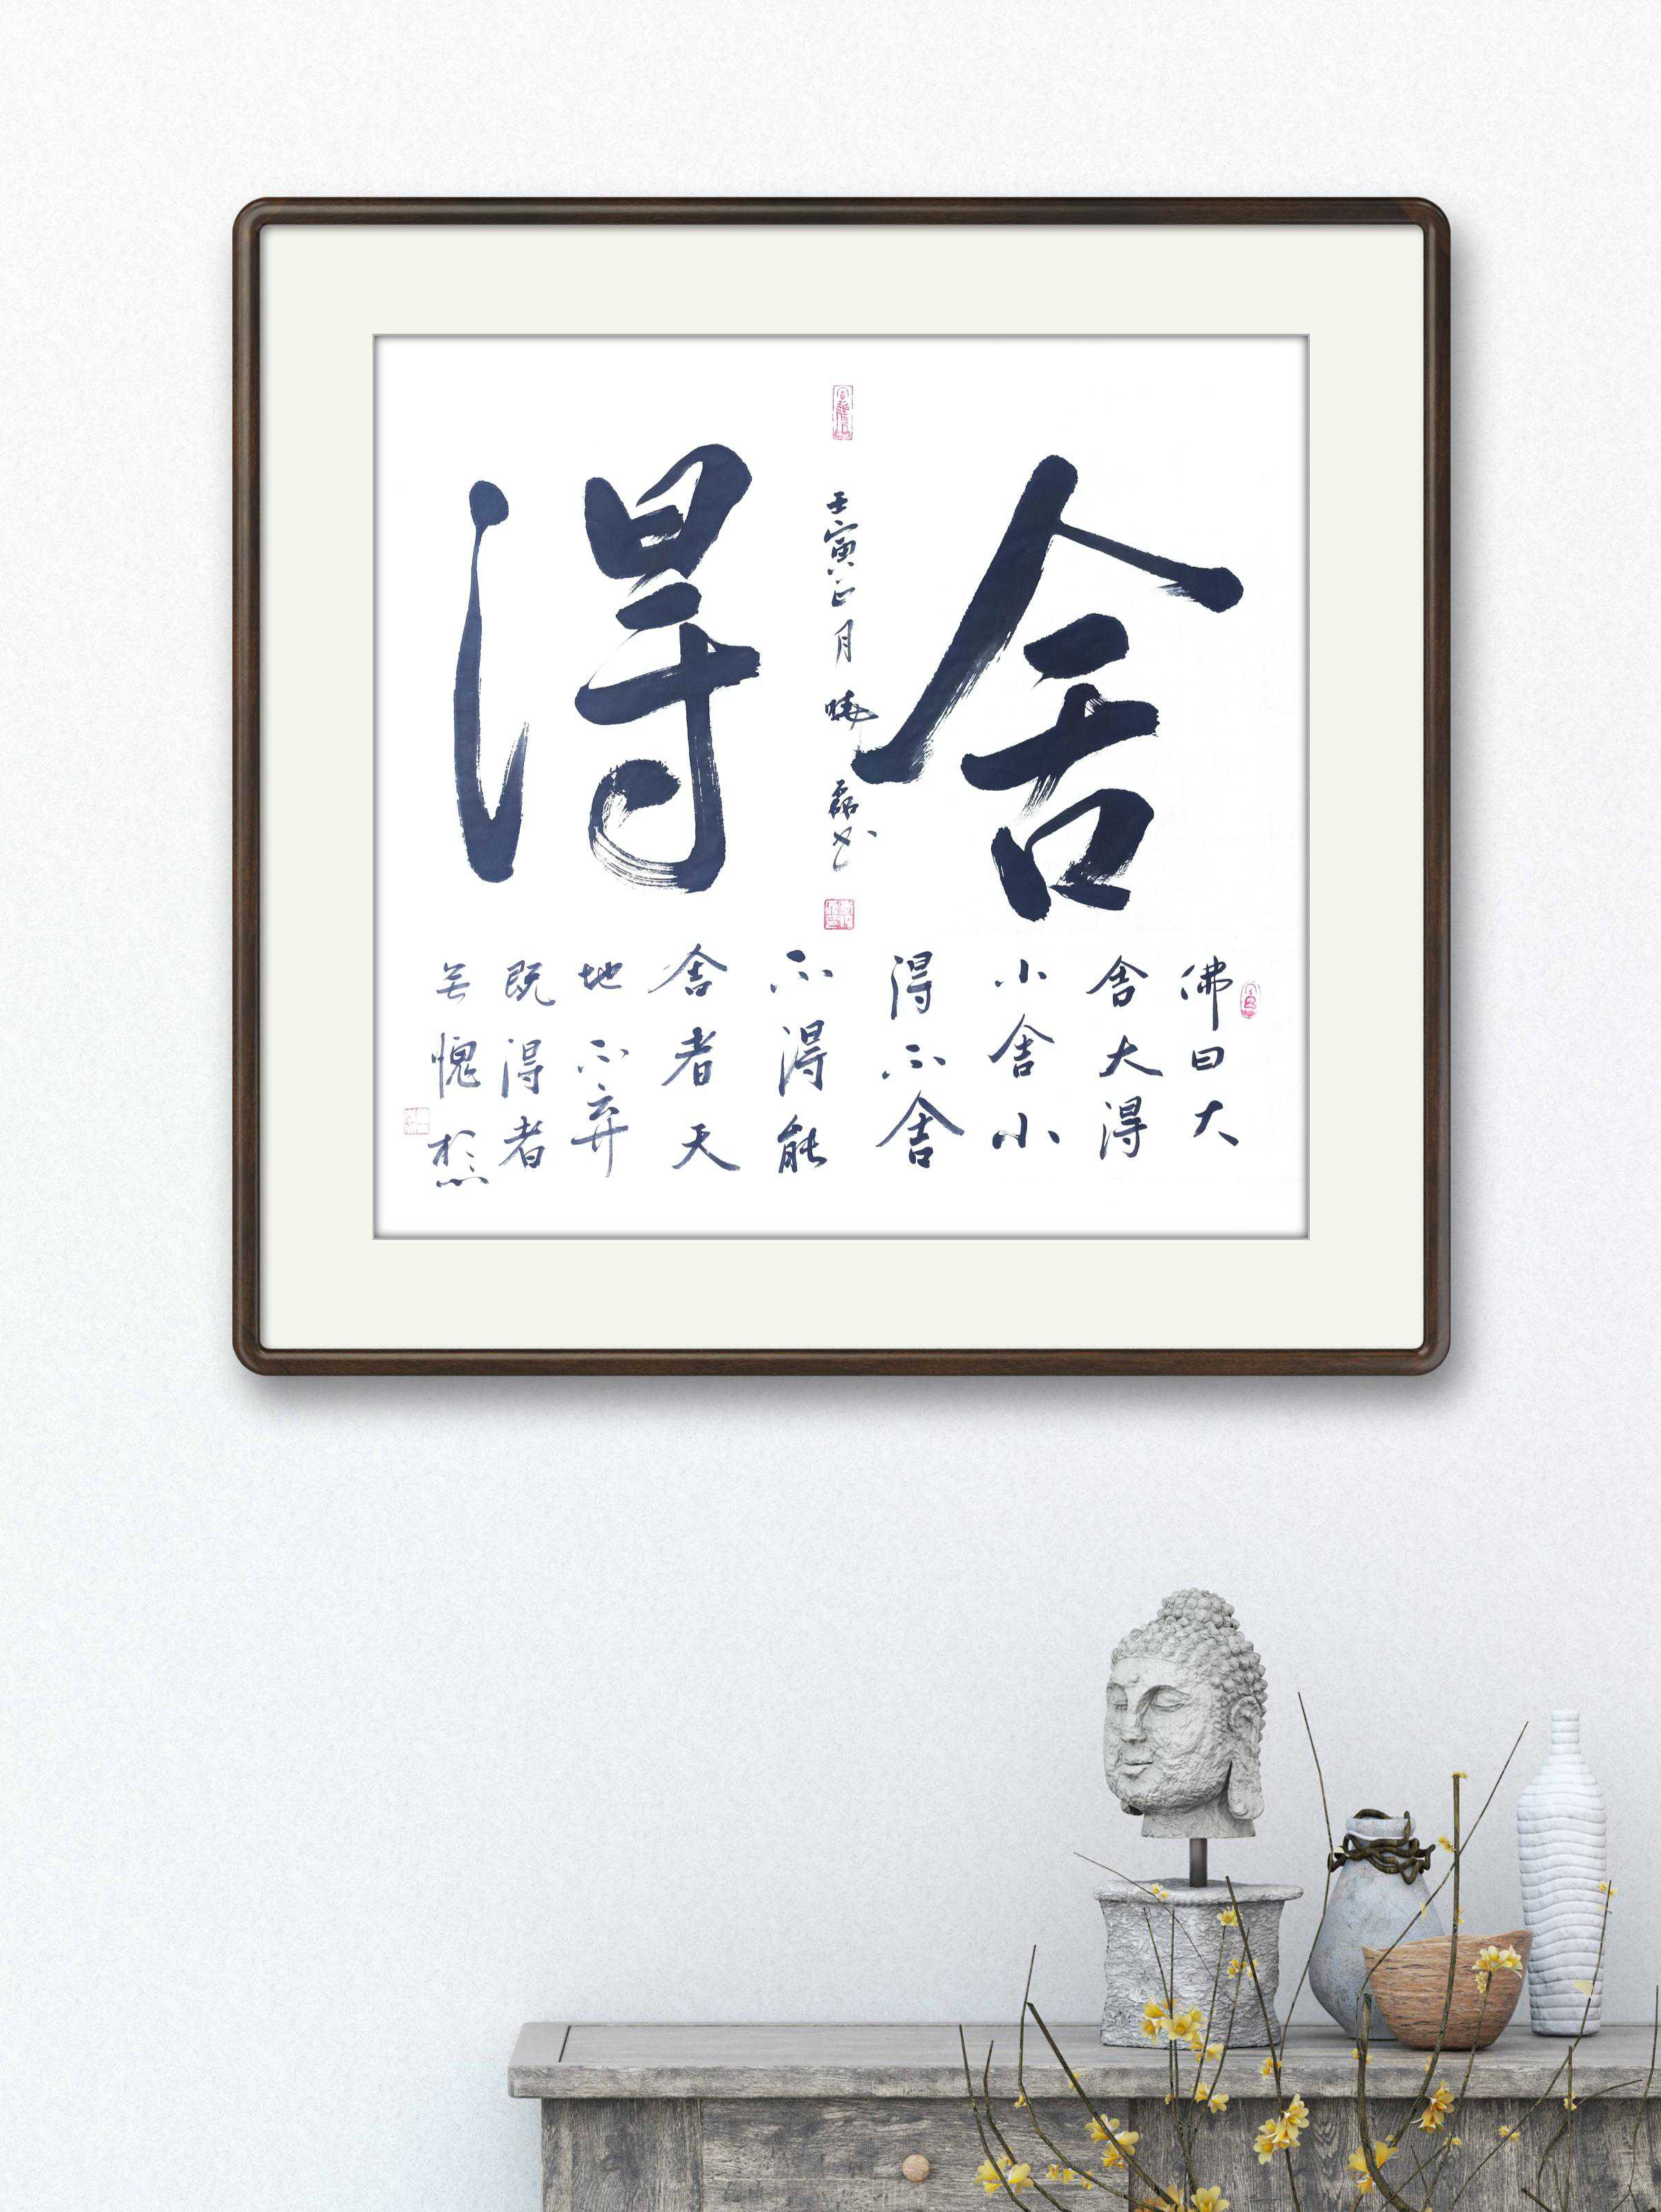 舍
壬寅正月晓磊书
得
佛曰大
舍大得
小舍小
得不舍
不得能
舍者天
地不弃
既得者
无愧於心